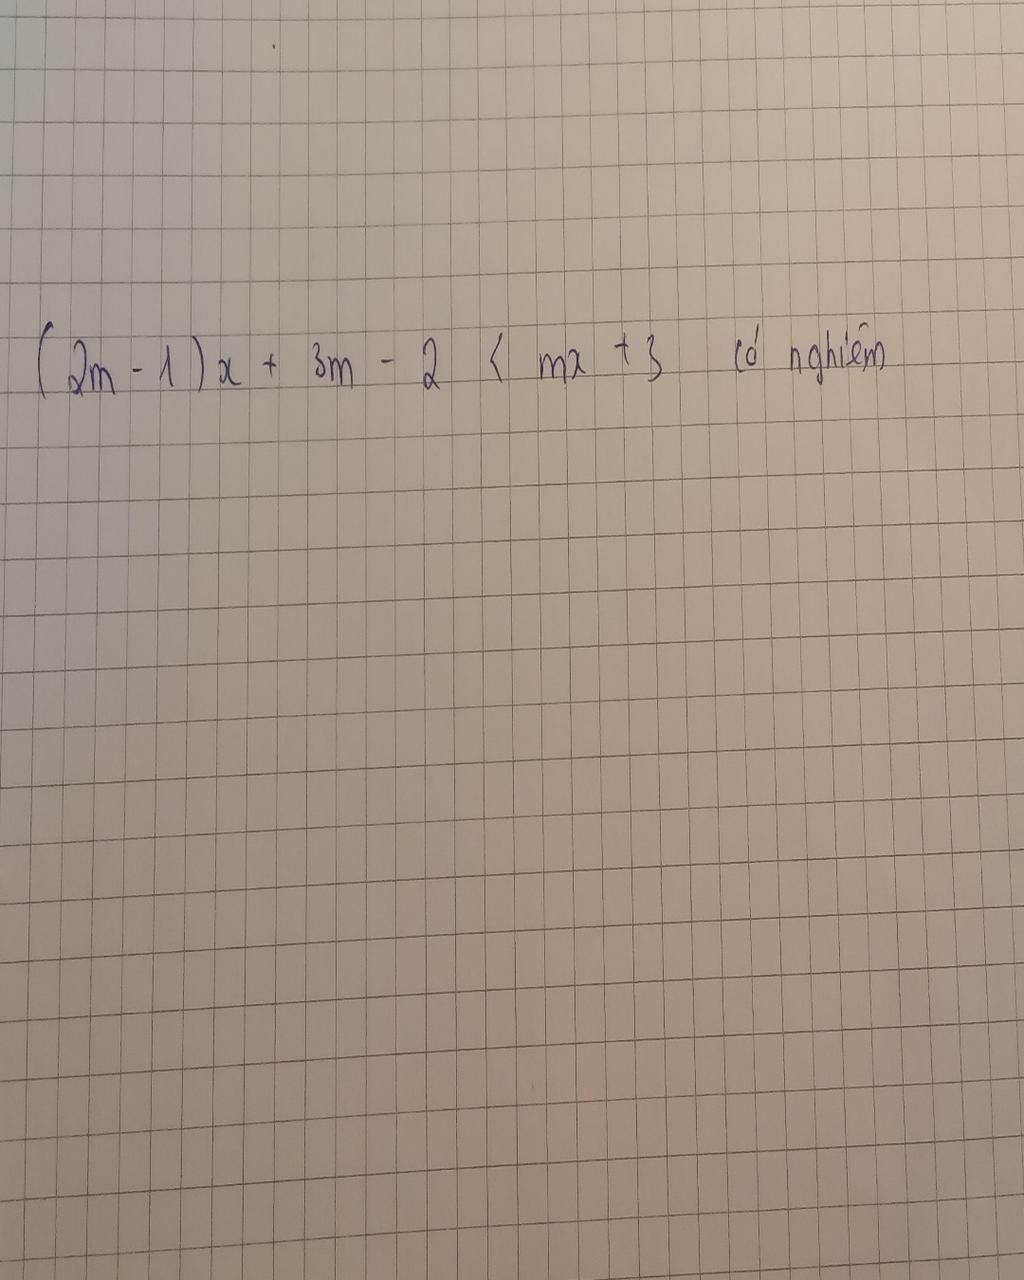 (2m - 1)x + 3m - 2 < mx + 3 có nghiệm